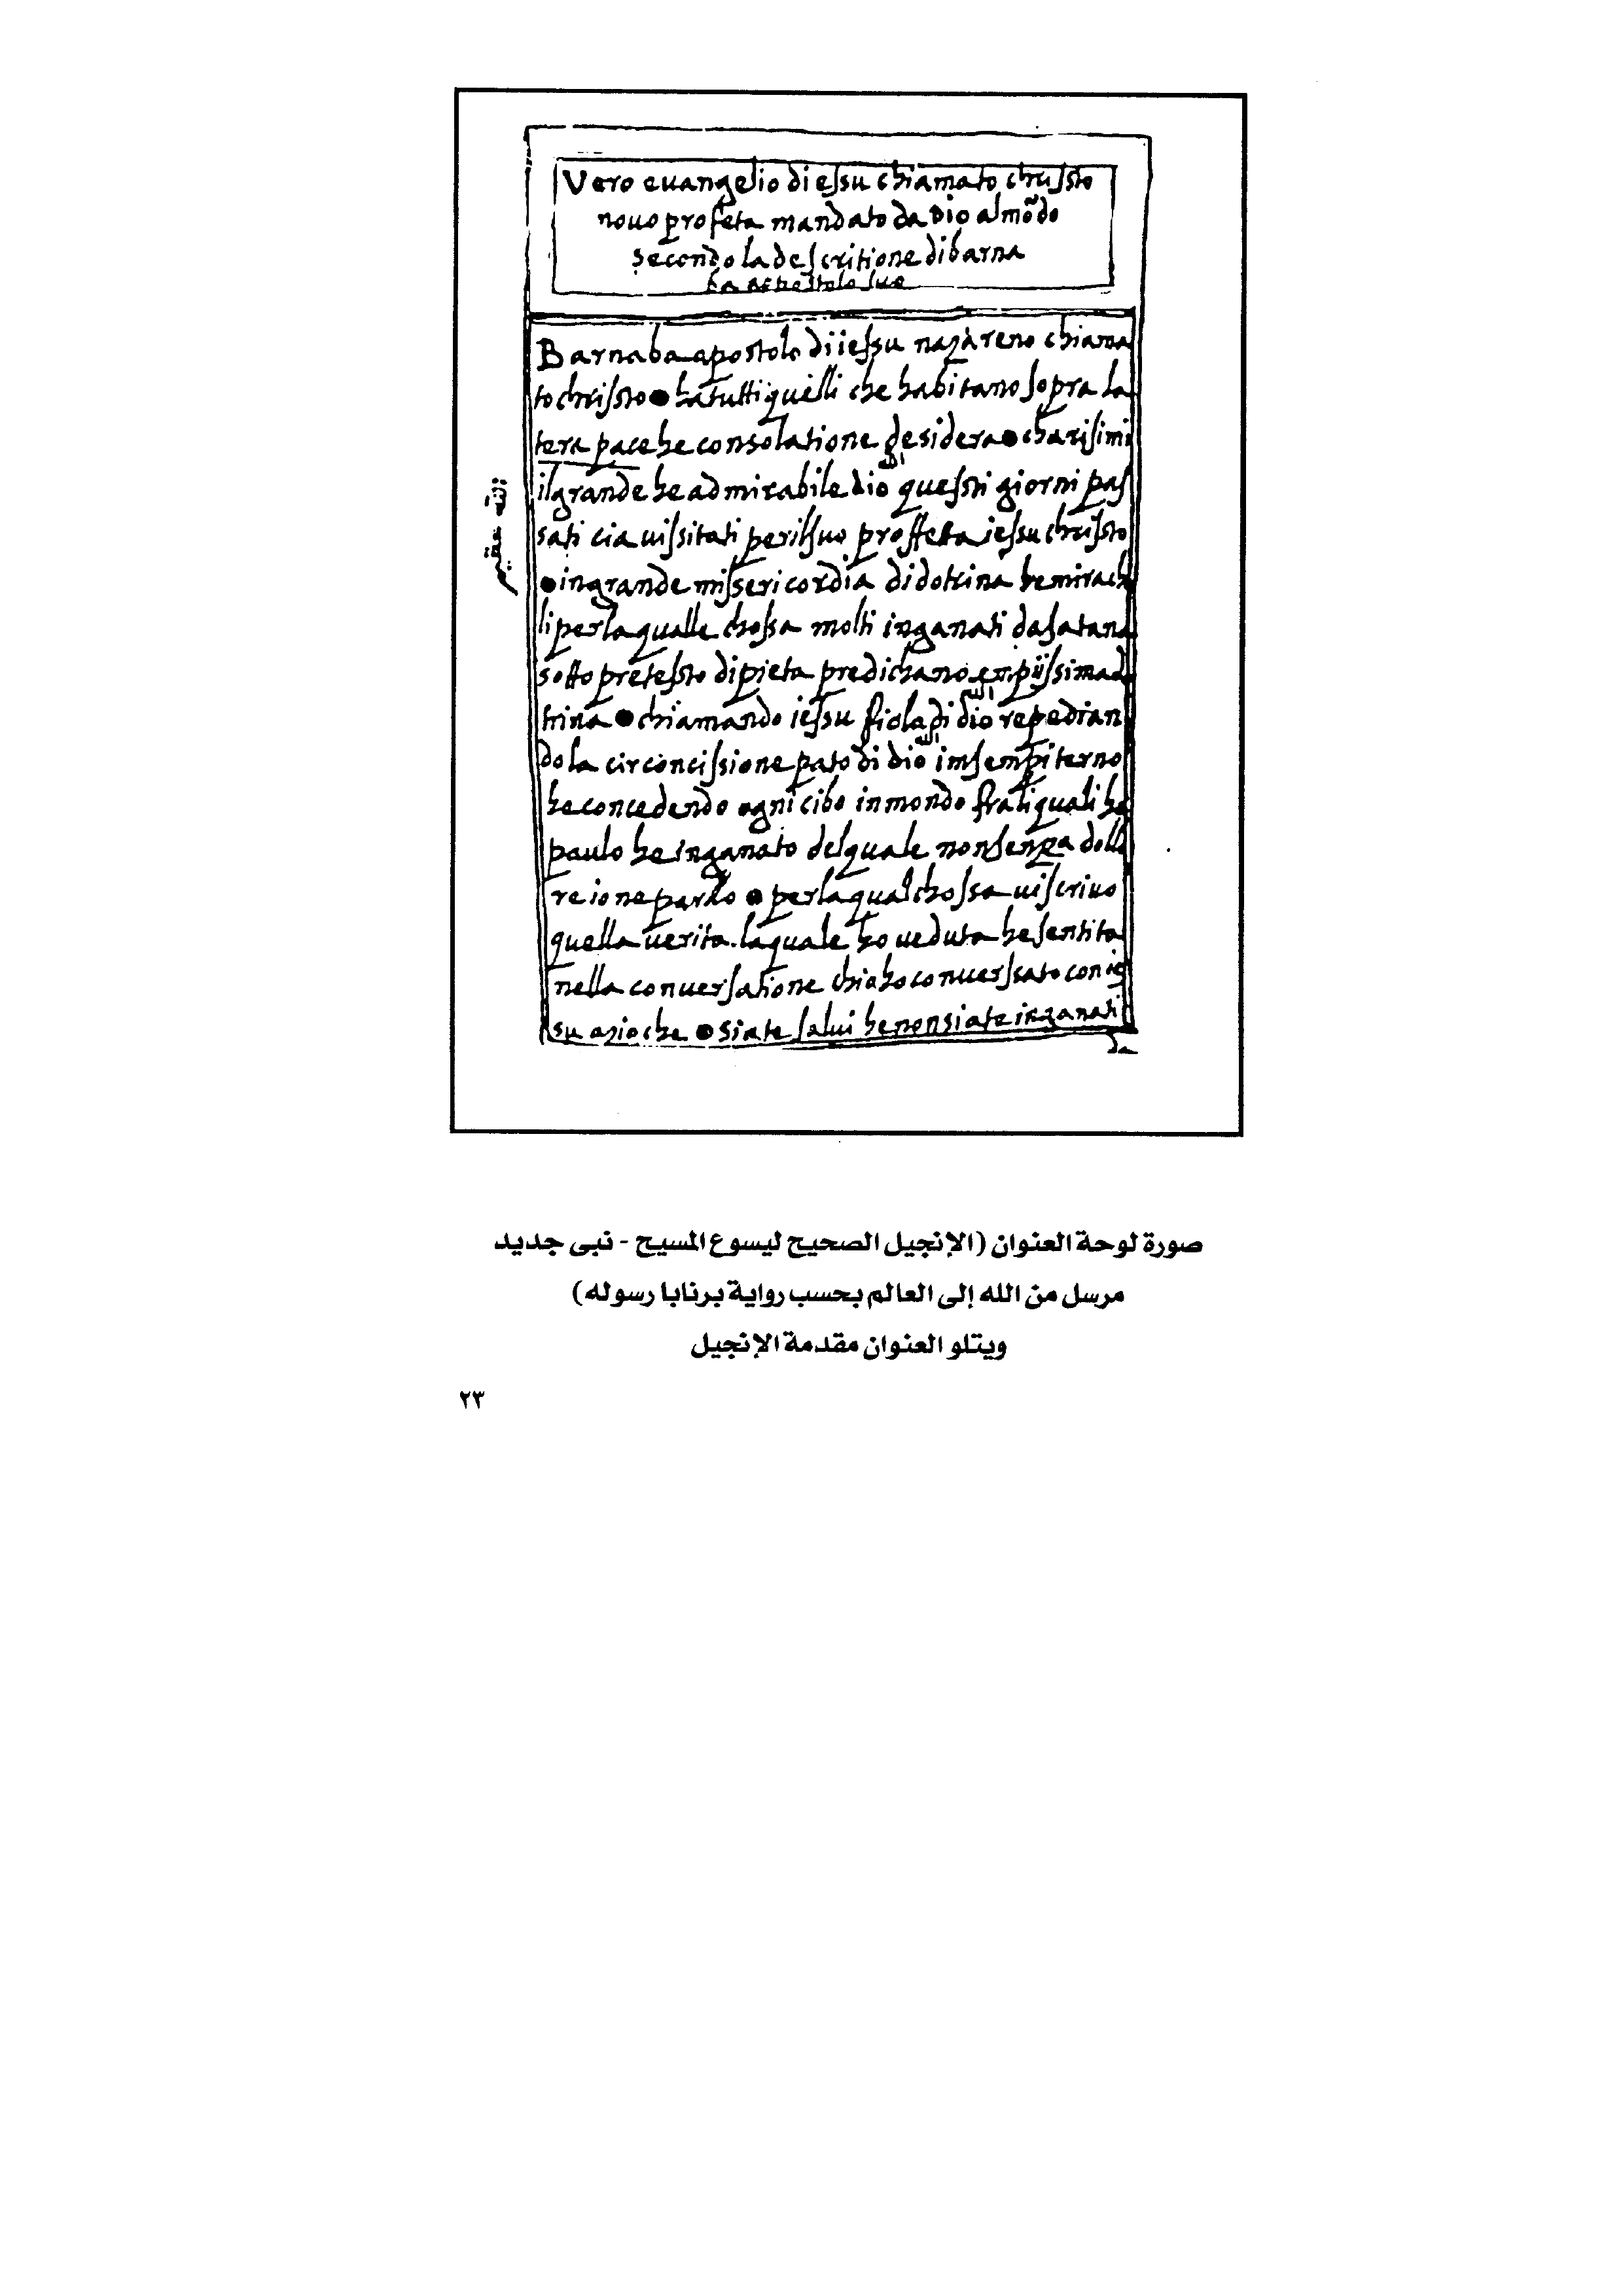 Vero euangelio di iessu chiamato chrissto
nouo profeta mandato da Dio al mõdo
secondo la descritione di barna
ba apostolo suo
Barnaba apostolo di iessu nazareno chiama
to chrissto ● ha tutti quelli che habitano sopra la
tera pace he consolatione desidera ● charisimi
الله
il grande he admirabile dio quessti giorni pas
sati cia uissitati per il suo proffetta iessu chrissto
● in grande misericordia di dotrina he mirach
li per la qualle chossa molti inganati da satana
sotto pretessto di pieta predichano empiissima do
الله
trina ● chiamando iessu fiolo di dio repedian
الله
do la circoncissione pato di dio in sempiterno
he concedendo ogni cibo inmondo fra li quali he
paulo he inganato del quale non senza dollo
re ione parlo ● per la qual chossa ui scriuo
quella uerita la quale ho ueduta he sentita
nella conuersatione chio ho conuerssato con ies
su azioche ● siate salui he non siate inganati
da
الله عظيم
صورة لوحة العنوان (الإنجيل الصحيح ليسوع المسيح - نبى جديد
مرسل من الله إلى العالم بحسب رواية برنابا رسوله)
ويتلو العنوان مقدمة الإنجيل
٢٣